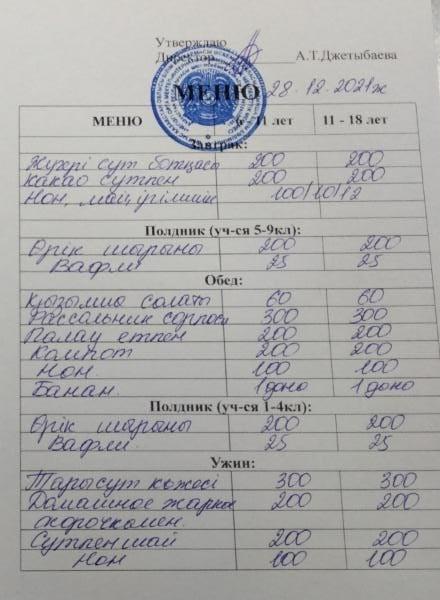 Утверждаю
Директор А.Т.Джетыбаева
МЕНЮ 28.12.2021ж
МЕНЮ 6 - 11 лет 11 - 18 лет
Завтрак:
Жүгері сүт ботқасы 200 200
Какао сүтпен 200 200
Нон, май, ірімшік 100/10/12
Полдник (уч-ся 5-9кл):
Өрік шырыны 200 200
Вафли 25 25
Обед:
Қызылша салаты 60 60
Рассольник сорпасы 300 300
Палау етпен 200 200
Компот 200 200
Нон. 100 100
Банан. 1 дона 1 дона
Полдник (уч-ся 1-4кл):
Өрік шырыны 200 200
Вафли. 25 25
Ужин:
Тары сүт көжесі 300 300
Домашное жаркое 200 200
Сүтпен шай 200 200
Нон 100 100